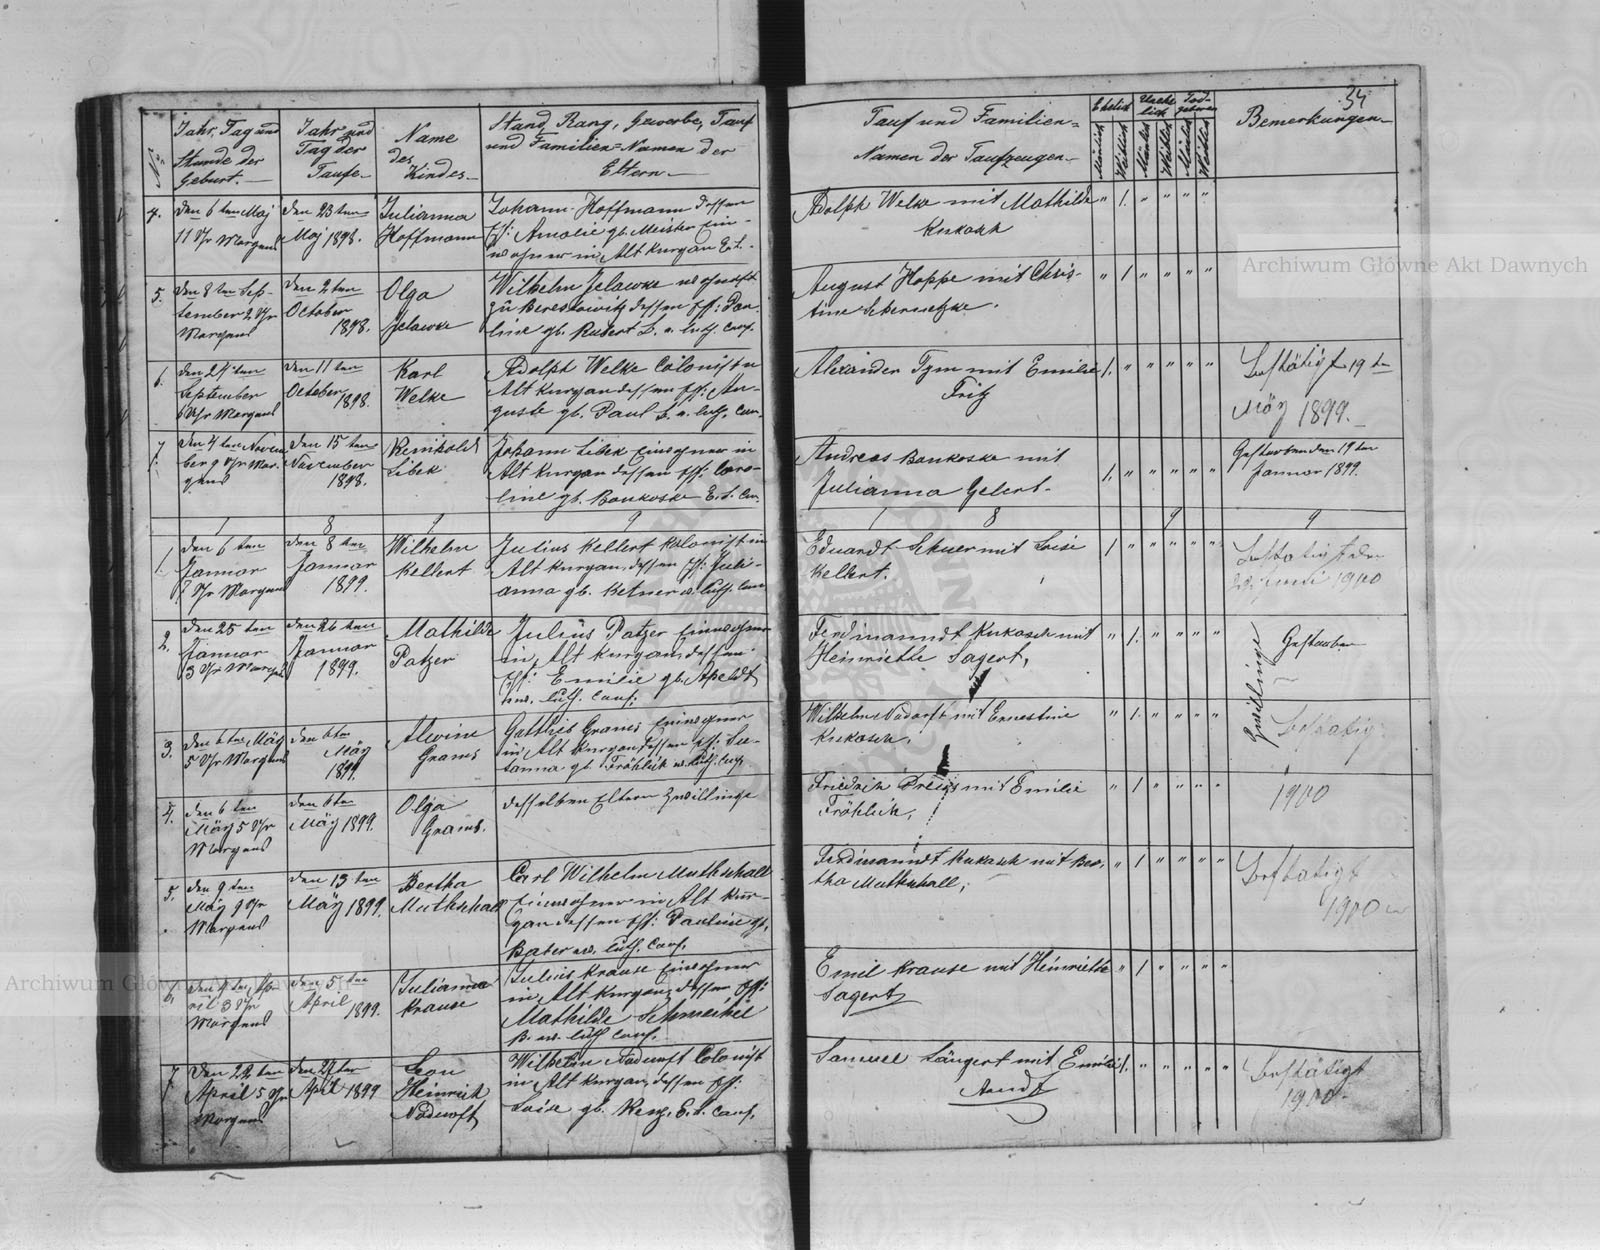 34
No
Jahr, Tag und
Stunde der
Geburt.
Jahr und
Tag der
Taufe
Name
des
Kindes
Stand, Rang, Gewerbe, Tauf
und Familien-Namen der
Eltern
Tauf und Familien-
Namen der Taufzeugen
Ehelich
Unehe
lich
Tod-
geboren
Männlich
Weiblich
Männlich
Weiblich
Männlich
Weiblich
Bemerkungen
4.
den 6ten Maj
11 Uhr Morgens
den 23ten
Maj 1898.
Julianna
Hoffmann
Johann Hoffmann dessen
Amalie gb. Meister Ein-
wohner in Alt Kurgan
Adolph Welke mit Mathilde
Kukasch
" 1. " " " "
5.
den 8ten Sep-
tember 2 Uhr
Morgens
den 2ten
October
1898.
Olga
Jelawke
Wilhelm Jelawke wohnhaft
zu Berestowitz dessen Pau-
line gb. Rubert luth. Conf.
August Hoppe mit Chris-
tine
" 1 " " " "
6.
September
6 Uhr Morgens
den 11ten
October
1898.
Karl
Welke
Adolph Welke Colonist u
Alt Kurgan dessen Au-
guste gb. Paul luth. Con.
Alexander Tym mit Emilie
Fritz
1. " " " " "
Bestätigt 19ten
Mäy 1899.
7.
den 4ten Novem
ber 9 Uhr Mor-
gens
den 15ten
November
1898.
Reinhold
Libek
Johann Libek Einwohner in
Alt Kurgan dessen Caro-
line gb. Bonkoske E. L. Con.
Andreas Bonkoske mit
Julianna Gelert
1. " " " " "
Gestorben den 19ten
Januar 1899.
1 8 9 9
1 8 9 9
1.
den 6ten
Januar
7 Uhr Morgens
den 8ten
Januar
1899.
Wilhelm
Kellert
Julius Kellert Kolonist in
Alt Kurgan, dessen Juli-
anna gb. Ketner luth. Con
Eduardt Schuer mit Loise
Kellert.
1 " " " " "
Bestätigt den
Juni 1900
2.
den 25ten
Januar
3 Uhr Morgens
den 26ten
Januar
1899.
Mathilde
Patzer
Julius Patzer Einwohner
in Alt Kurgan, dessen
Emilie gb. Apeldt
luth. Conf.
Ferdinanndt Kukasch mit
Heinriette Sagert,
" 1. " " " "
Gestorben
3.
den 6ten Mäy
5 Uhr Morgens
den 6ten
Mäy
1899.
Alwine
Grams
Gottlieb Grams Einwohner
in Alt Kurgan, dessen Su-
sanna gb. Fröhlich luth. Conf.
Wilhelm Nadorft mit Ernestine
Kukasch.
" 1. " " " "
Zwillinge
Bestätig
4.
den 6ten
Mäy 5 Uhr
Morgens
den 6ten
Mäy 1899.
Olga
Grams.
desselben Eltern Zwillinge
Friedrich Preiss mit Emilie
Fröhlich,
" 1 " " " "
1900
5.
den 9ten
Mäy 9 Uhr
Morgens
den 13ten
Mäy 1899.
Bertha
Muthschall
Carl Wilhelm Muthschall
Einwohner in Alt Kur-
gan dessen Pauline gb.
Bater luth. Conf.
Ferdinanndt Kukasch mit Ber-
tha Muthschall,
" 1 " " " "
Bestätigt
1900
6.
Morgens
den 5ten
April
1899.
Julianna
Krause
Julius Krause Einwohner
in Alt Kurgan, dessen
Mathilde Schmeichel
luth Conf.
Emil Krause mit Heinriette
Sagert
" 1 " " " "
7.
den 22ten
April 5 Uhr
Morgens
April 1899
Leon
Heinrich
Wilhelm Colonist
in Alt Kurgan, dessen
Loise gb. Renz, E. L. Conf,
Samuel Längert mit Emilie
Arndt
1. " " " " "
Bestätigt
1900
Archiwum Główne Akt Dawnych
Archiwum Główne Akt Dawnych